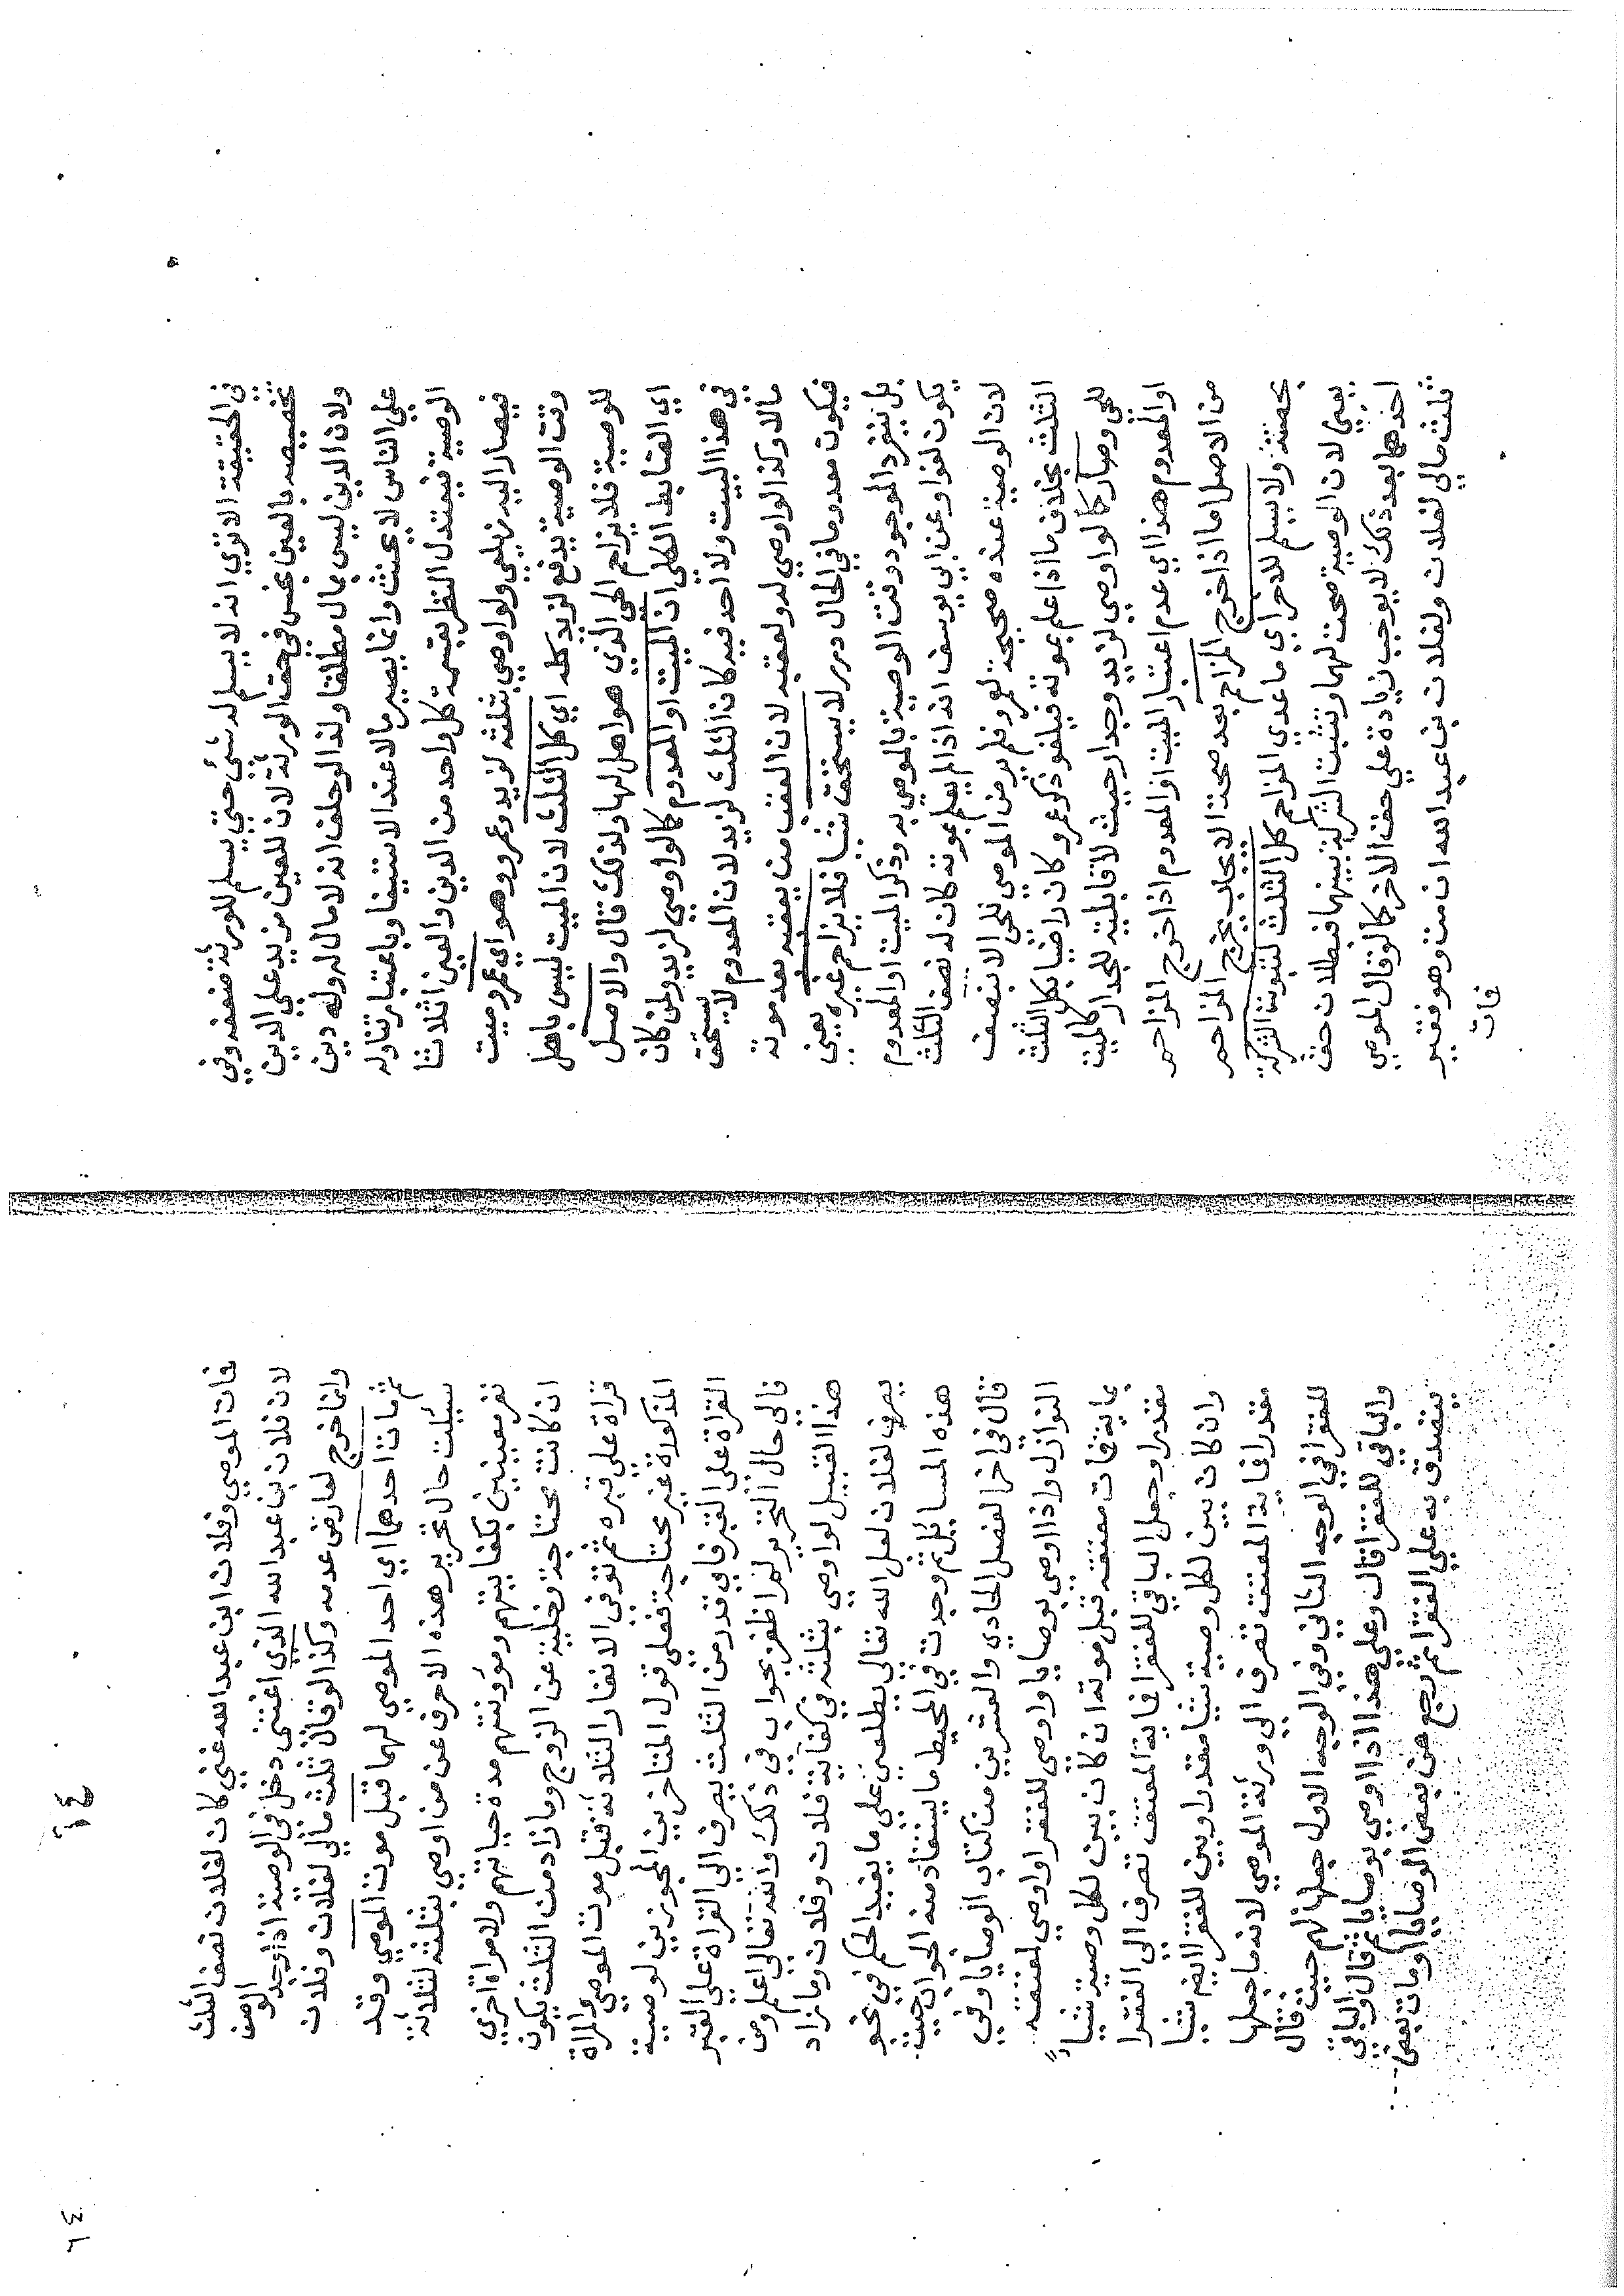 في الحقيقة الا تري انه لا يسلم له شيء حتي يسلم للورثة ضعفه وفي
تخصيصه بالعين بخس في حق الورثة لان للعين مزيد علي الدين
ولان الدين ليس بمال مطلقا ولذا لو حلف انه لا مال له وله دين
علي الناس لا يحنث وانما يصير مالا عند الاستيفا وباعتبار تناوله
الوصية فيعتدل النظر بقسمة كل واحد من الدين والعين اثلاثا
فيصار اليه زيلعي ولو اوصي بثلثه لزيد وعمرو وهو اي عمرو ميت
وقت الوصية يدفع لزيد كله اي كل الثلث لان الميت ليس باهل
للوصية فلا يزاحم الحي الذي هو اهل لها ولذلك قال والاصل
اي الضابط الكلي ان الميت او المعدوم كما لو اوصي لزيد ولمن كان
في هذا البيت ولا احد فيه كان الثلث لزيد لان المعدوم لا يستحق
مالا وكذا لو اوصي له ولعقبه لان العقب من يعقبه بعد موته
فيكون معدوما في الحال درر لا يستحق شيا فلا يزاحم غيره يعني
بل ينفرد الموجود وقت الوصية بالموصي به وذكر الميت او المعدوم
يكون لغوا وعن ابي يوسف انه اذا لم يعلم بموته كان له نصف الثلث
لان الوصية عنده صحيحة لعمرو فلم يرض الموصي للحي الا بنصف
الثلث بخلاف ما اذا علم بموته فيلغو ذكر عمرو كان راضيا بكل الثلث
للحي وصار كما لو اوصي لزيد وجدار حيث لا قابلية للجدار كالميت
او المعدوم هذا اي عدم اعتبار الميت او المعدوم اذا خرج المزاحم
من الاصل اما اذا خرج المزاحم بعد صحة الايجاب يخرج المزاحم
بحصته ولا يسلم للاخر اي ما عدي المزاحم كل الثلث لثبوت الشركة
يعني لان الوصية صحت لهما وتثبت الشركة بينهما فبطلان حق
احدهما بعد ذلك لا يوجب زيادة علي حق الاخر كما لو قال الموصي
ثلث مالي لفلان ولفلان بن عبد الله ان مت وهو فقير
فات
فات الموصي وفلان ابن عبد الله غني كان لفلان نصف الثلث
لان فلان بن عبد الله الذي اغتنى دخل في الوصية اذا وجد الوصف
وانما خرج لعارض عدمه وكذا لو قال ثلث مالي لفلان وفلان
ثم مات احدهما اي احد الموصي لهما قبل موت الموصي وقد
سئلت حال تحرير هذه الاحرف عن من اوصي بثلثه لثلاثة
نفر معينين بكفايتهم ومؤونتهم مدة حياتهم ولامراة اخري
ان كانت محتاجة وخلية عن الزوج وما زاد من الثلث يكون
قراة علي قبره ثم توفي الانفار الثلاثة قبل موت الموصي والمراة
المذكورة غير محتاجة فعلي قول المتاخرين المجوزين لوصية
القراة علي القبر فاي قدر من الثلث يصرف الي القراة علي القبر
فالي حال التحرير لم اظفر بجواب في ذلك والله تعالي اعلم ومن
هذا القبيل لو اوصي بثلثه في كفاية فلان وفلان وما زاد
يصرف لفلان لعل الله تعالي يطلعني علي ما يفيد الحكم في نحو
هذه المسايل ثم وجدت في المحيط ما يستفاد منه الجواب حيث
قال في اخر الفصل الحادي والعشرين من كتاب الوصايا وفي
النوازل واذا اوصي بوصايا واوصي للفقرا واوصي لمعتقه
بماية فات معتقه قبل موته ان كان بين لكل وصية شيأ
مقدرا وجعل الباقي للفقرا فماية المعتق تصرف الي الفقرا
وان كان بين لكل وصية شيا مقدرا وبين للفقرا ايضا شيا
مقدرا فماية المعتق تصرف الي ورثة الموصي لانه ما جعلها
للفقرا في الوجه الثاني وفي الوجه الاول جعلها لهم حيث قال
والباقي للفقرا قال وعلي هذا اذا اوصي بوصايا ثم قال والباقي
يتصدق به علي الفقرا ثم رجع عن بعض الوصايا او مات بعض
٣٤